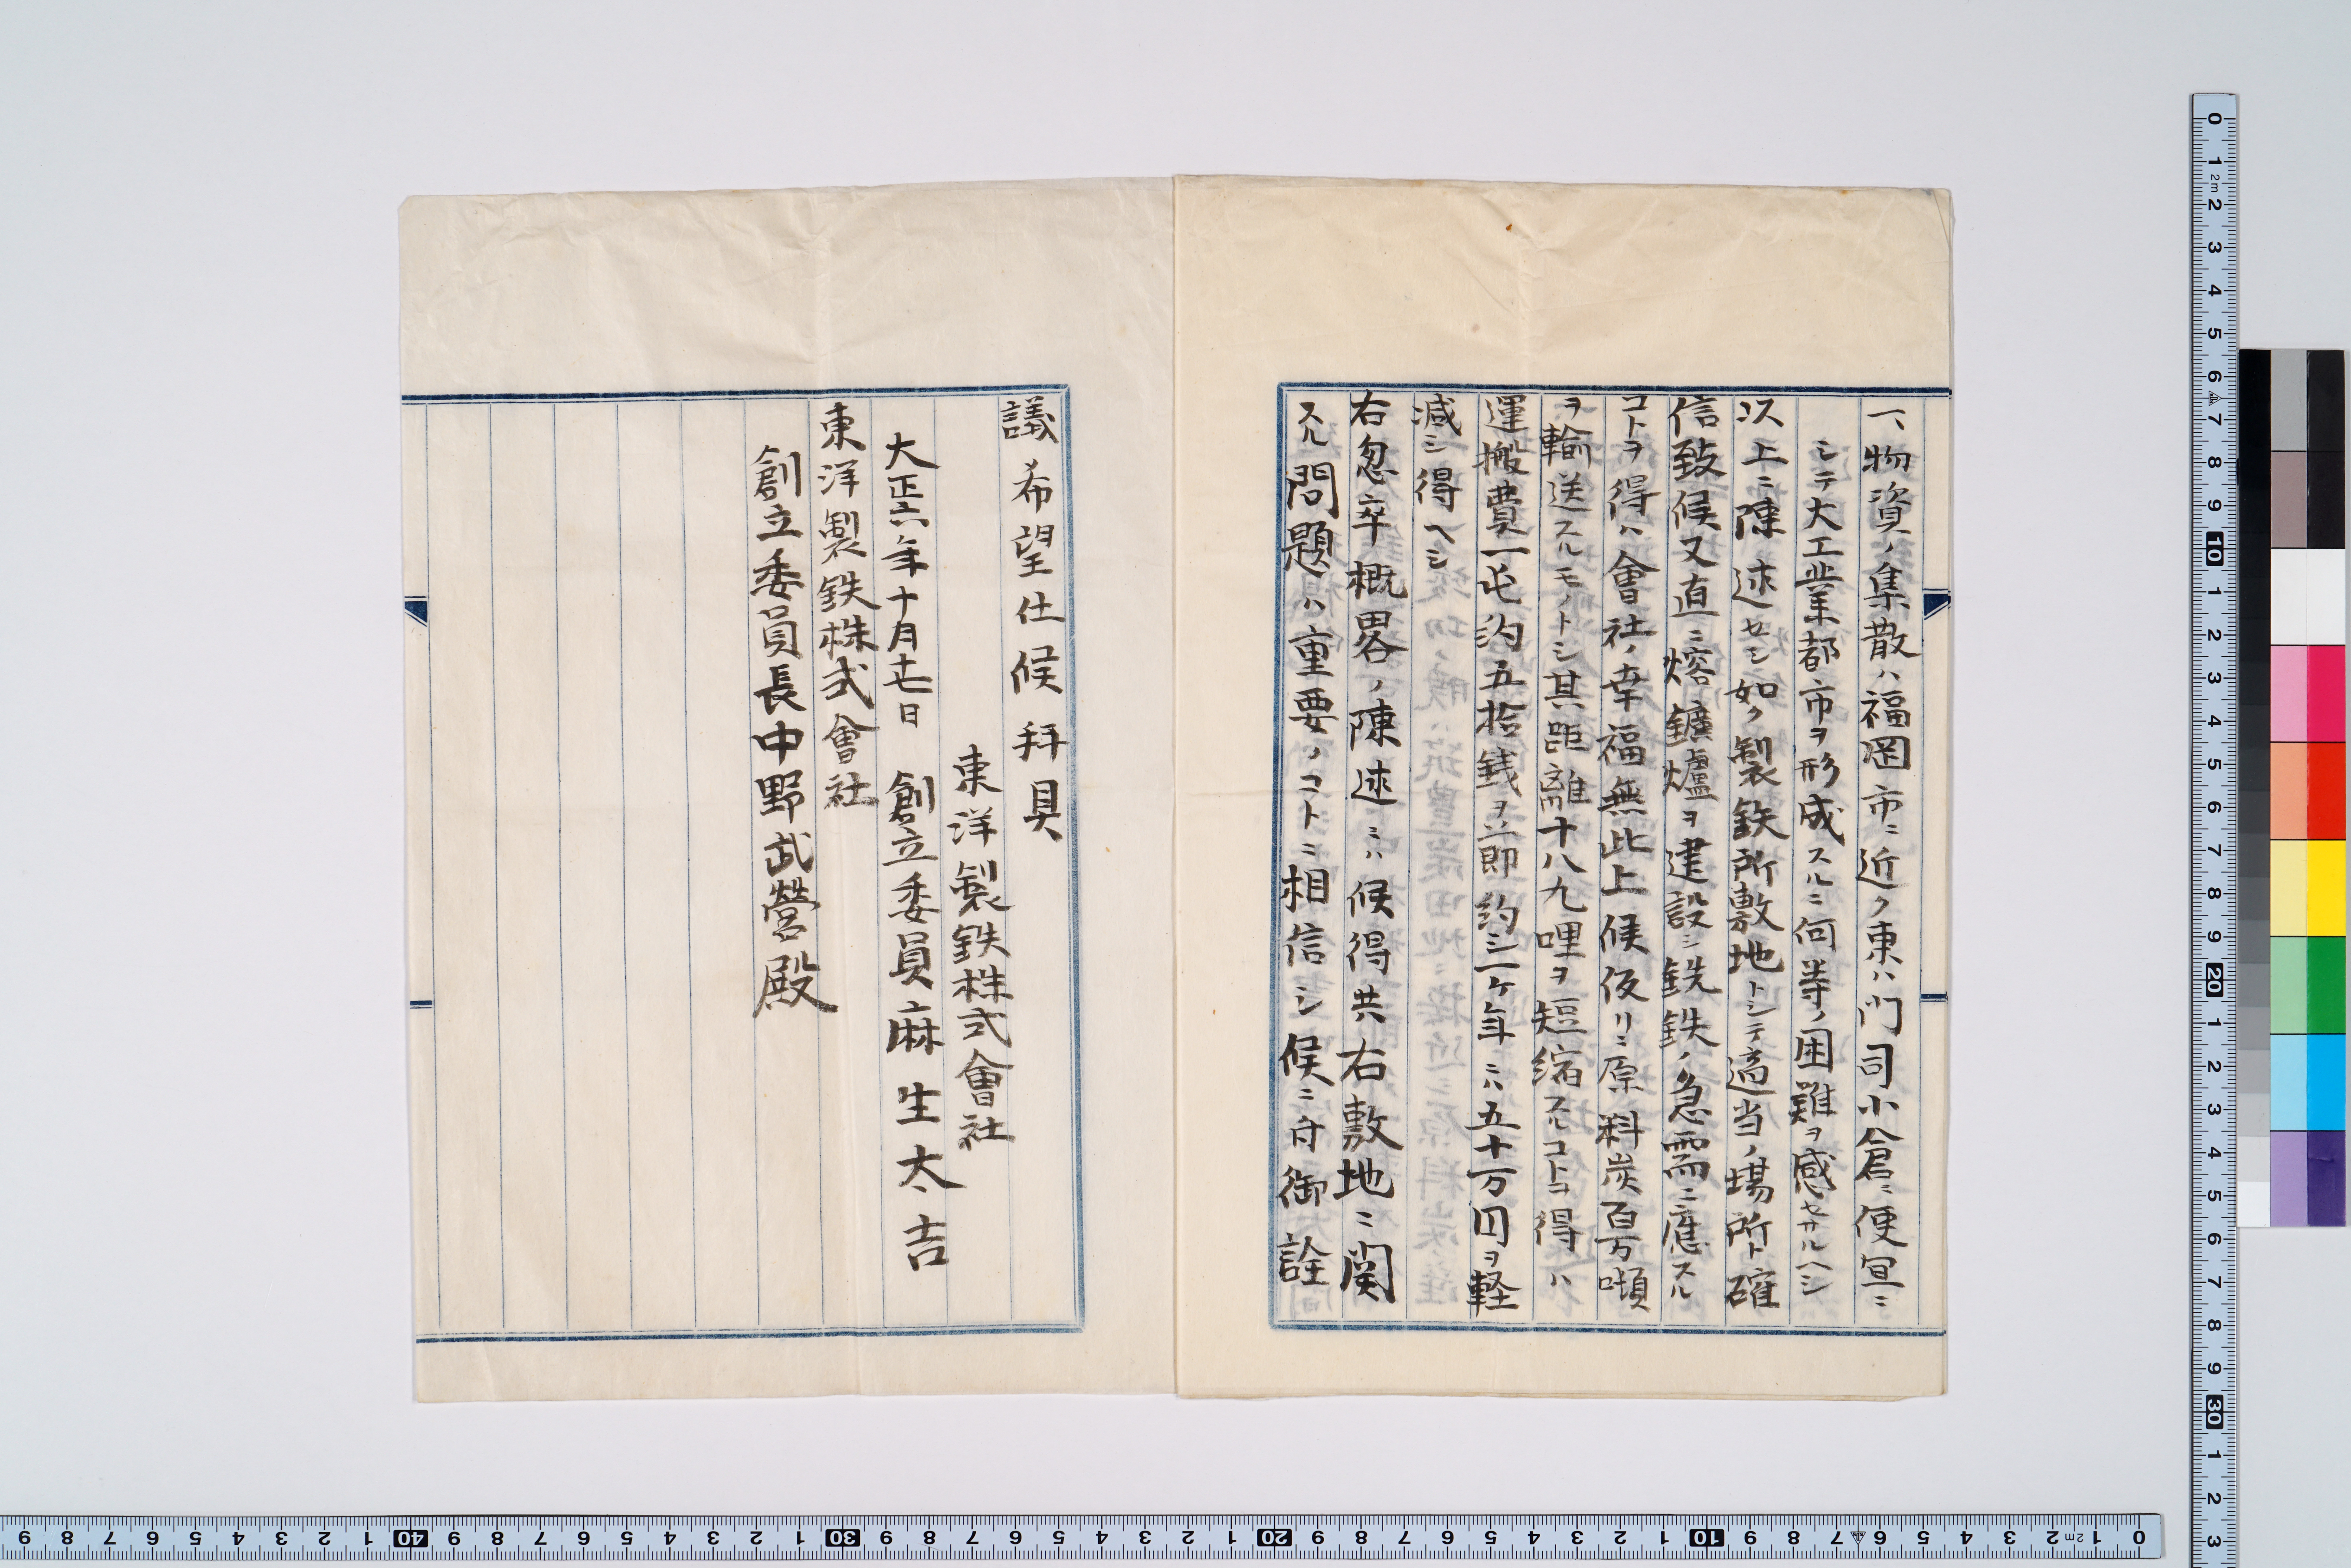 一、物資ノ集散ハ福岡市ニ近ク東ハ門司小倉ニ便宜ニ
シテ大工業都市ヲ形成スルニ何等ノ困難ヲ感セサルヘシ
以上ニ陳述セシ如ク製鉄所敷地トシテ適当ノ場所ト確
信致候又直ニ熔鑛爐ヲ建設シ銑鉄ノ急需ニ應スル
コトヲ得ハ會社ノ幸福無此上候仮リニ原料炭百万噸
ヲ輸送スルモノトシ其距離十八九哩ヲ短縮スルコトヲ得ハ
運搬費一屯約五拾銭ヲ節約シ一ケ年ニハ五十万円ヲ軽
減シ得ヘシ
右怱卒概畧ノ陳述ニハ候得共右敷地ニ関
スル問題ハ重要ノコトニ相信シ候ニ付御詮
議希望仕候拝具
東洋製鉄株式會社
大正六年十月十七日 創立委員麻生太吉
東洋製鉄株式會社
創立委員長中野武營殿